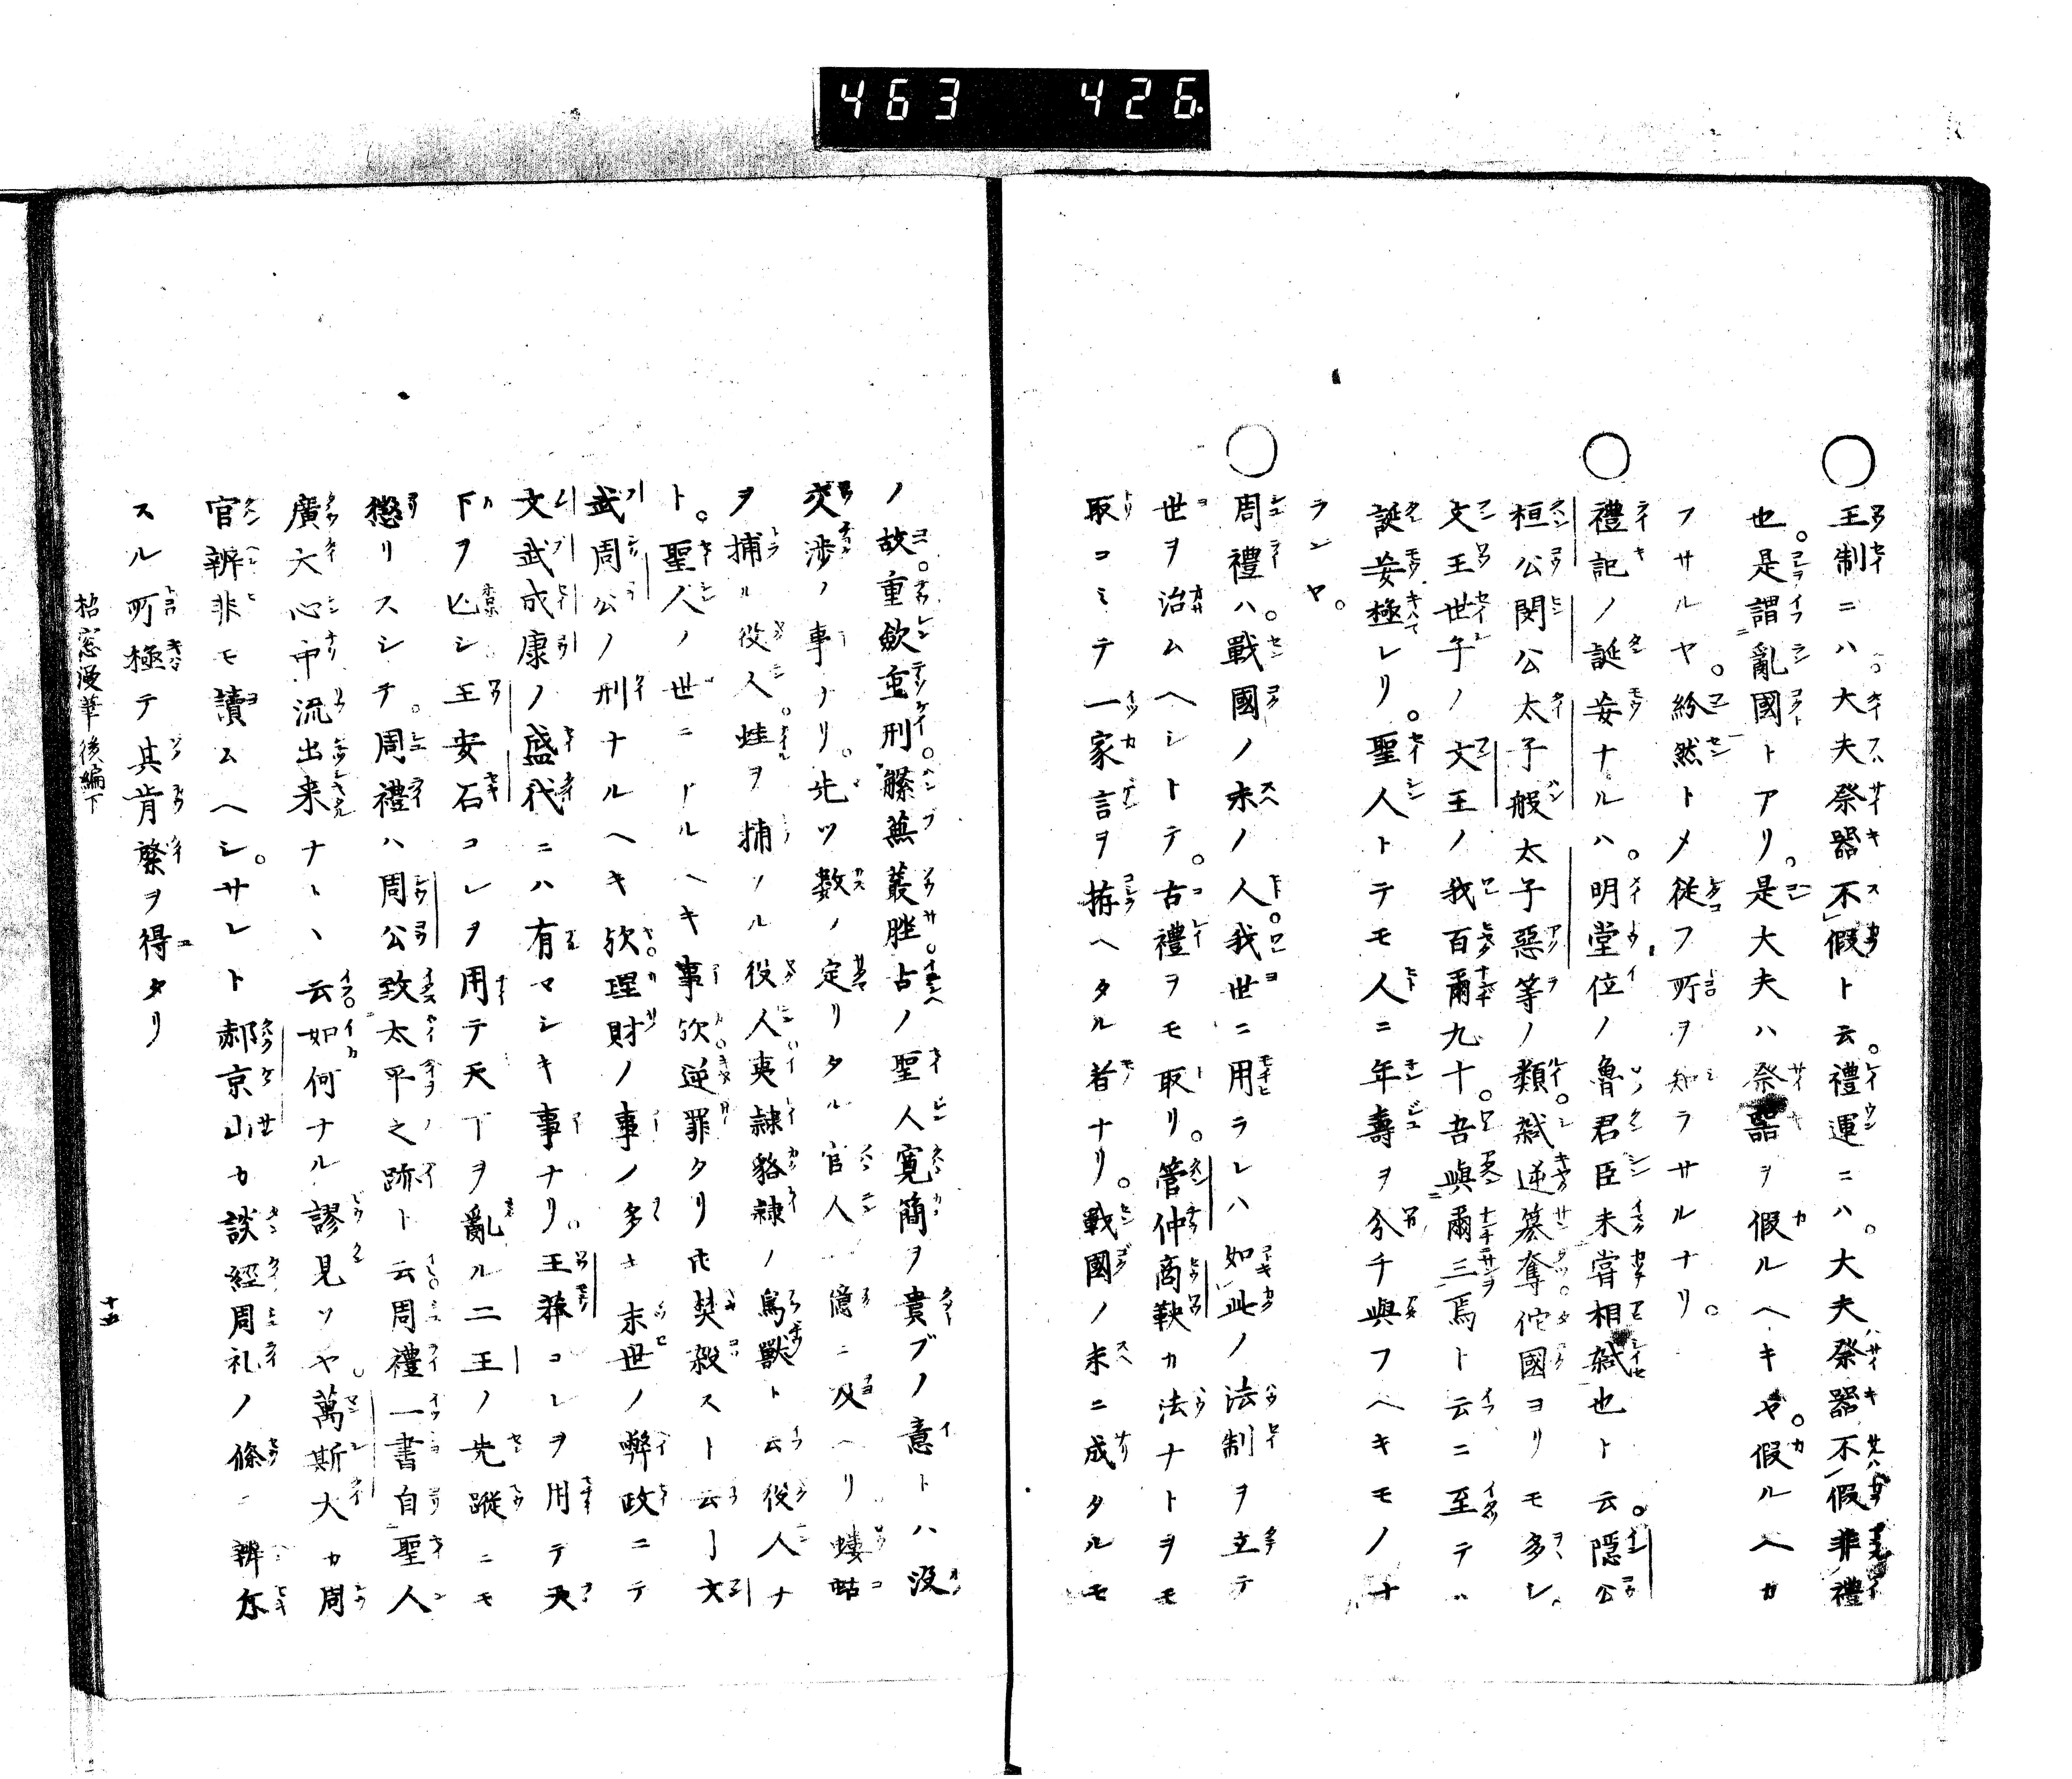 463 426
王制ニハ。大夫祭器不假ト云。禮運ニハ。大夫祭器不假非禮
也。是謂亂國トアリ。是大夫ハ祭器ヲ假ルヘキヤ。假ル人カ
フサルヤ。紛然トメ從フ所ヲ知ラサルナリ。
禮記ノ誕妄ナルハ。明堂位ノ魯君臣未嘗相弑也ト云。隱公
桓公閔公太子般太子惡等ノ類。弑逆簒奪佗國ヨリモ多シ。
文王世子ノ文王ノ我百爾九十。吾與爾三焉ト云ニ至テハ
誕妄極レリ。聖人トテモ人ニ年壽ヲ分チ與フヘキモノナ
ランヤ。
周禮ハ。戰國ノ末ノ人我世ニ用ラレハ如此ノ法制ヲ立テ
世ヲ治ムヘシトテ。古禮ヲモ取リ。管仲商鞅カ法ナトヲモ
取コミテ一家言ヲ拵ヘタル者ナリ。戰國ノ末ニ成タルモ
ノ故重歛重刑。縣蕪叢脞古ノ聖人寛簡ヲ貴ブノ意トハ没
交渉ノ事ナリ。先ツ數ノ定リタル官人億ニ及ヘリ螻蛄
ヲ捕ル役人。蛙ヲ捕ノル役人夷隷貉隷ノ鳥獸ト云役人ナ
ト。聖人ノ世ニアルヘキ事欤逆罪タリ𪜈焚殺スト云ー文
武周公ノ刑ナルヘキ欤理財ノ事ノ多キ末世ノ弊政ニテ
文武成康ノ盛代ニハ有マシキ事ナリ。王莽コレヲ用テ天
下ヲ亾シ王安石コレヲ用テ天下ヲ亂ル二王ノ先蹤ニモ
懲リスシテ。周禮ハ周公致太平之跡ト云周禮一書自聖人
廣大心中流出来ナト、云如何ナル謬見ソヤ。萬斯大カ周
官辨非モ讀ムヘシ。サレト郝京山カ談經周礼ノ條ニ辨尓
スル所極テ其肯綮ヲ得タリ
後編下
十五